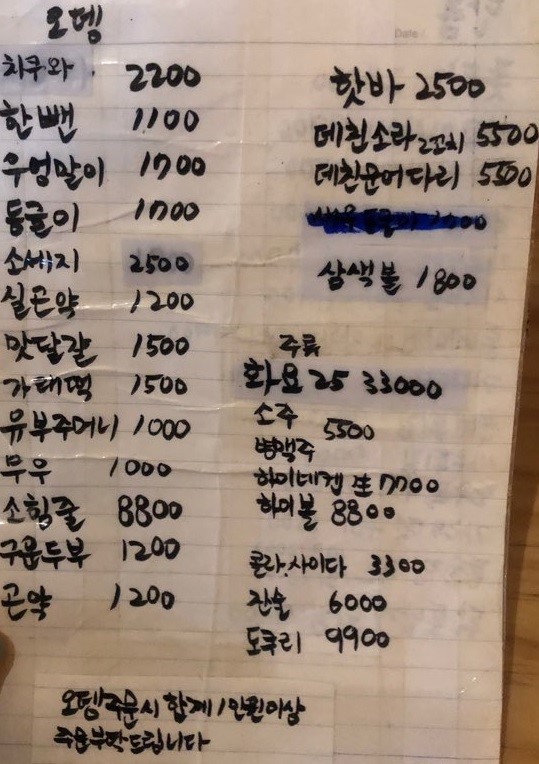 오뎅
치쿠와 2200
한뺀 1100
우엉말이 1700
동글이 1700
소세지 2500
실곤약 1200
맛달걀 1500
가래떡 1500
유부주머니 1000
무우 1000
소힘줄 8800
구운두부 1200
곤약 1200
핫바 2500
데친소라 2꼬치 5500
데친문어다리 5500
삼색볼 1800
주류
화요 25 33000
소주
5500
병맥주
하이네켄 生 7700
하이볼 8800
콜라.사이다 3300
잔술 6000
도쿠리 9900
오뎅주문시 합계 1만원이상
주문부탁드립니다